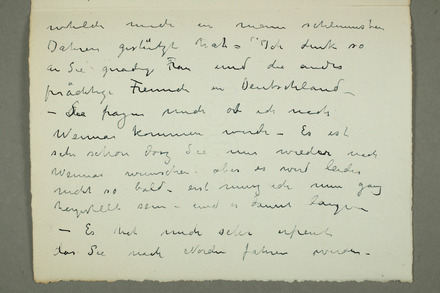 welche mich in meinen schlimmsten
Jahren gestützt hat = "Ich denk so
an Sie gnädige Frau und die andre
prächtige Freunde in Deutschland –
– Sie fragen mich ob ich nach
Weimar kommen würde – Es ist
sehr schön dass Sie uns wieder nach
Weimar wünschen – aber es wird leider
nicht so bald – erst muss ich nun ganz
hergestellt sein – und es dauert
– Es hat mich sehr erfreut
das Sie nach Norden fahren würden –